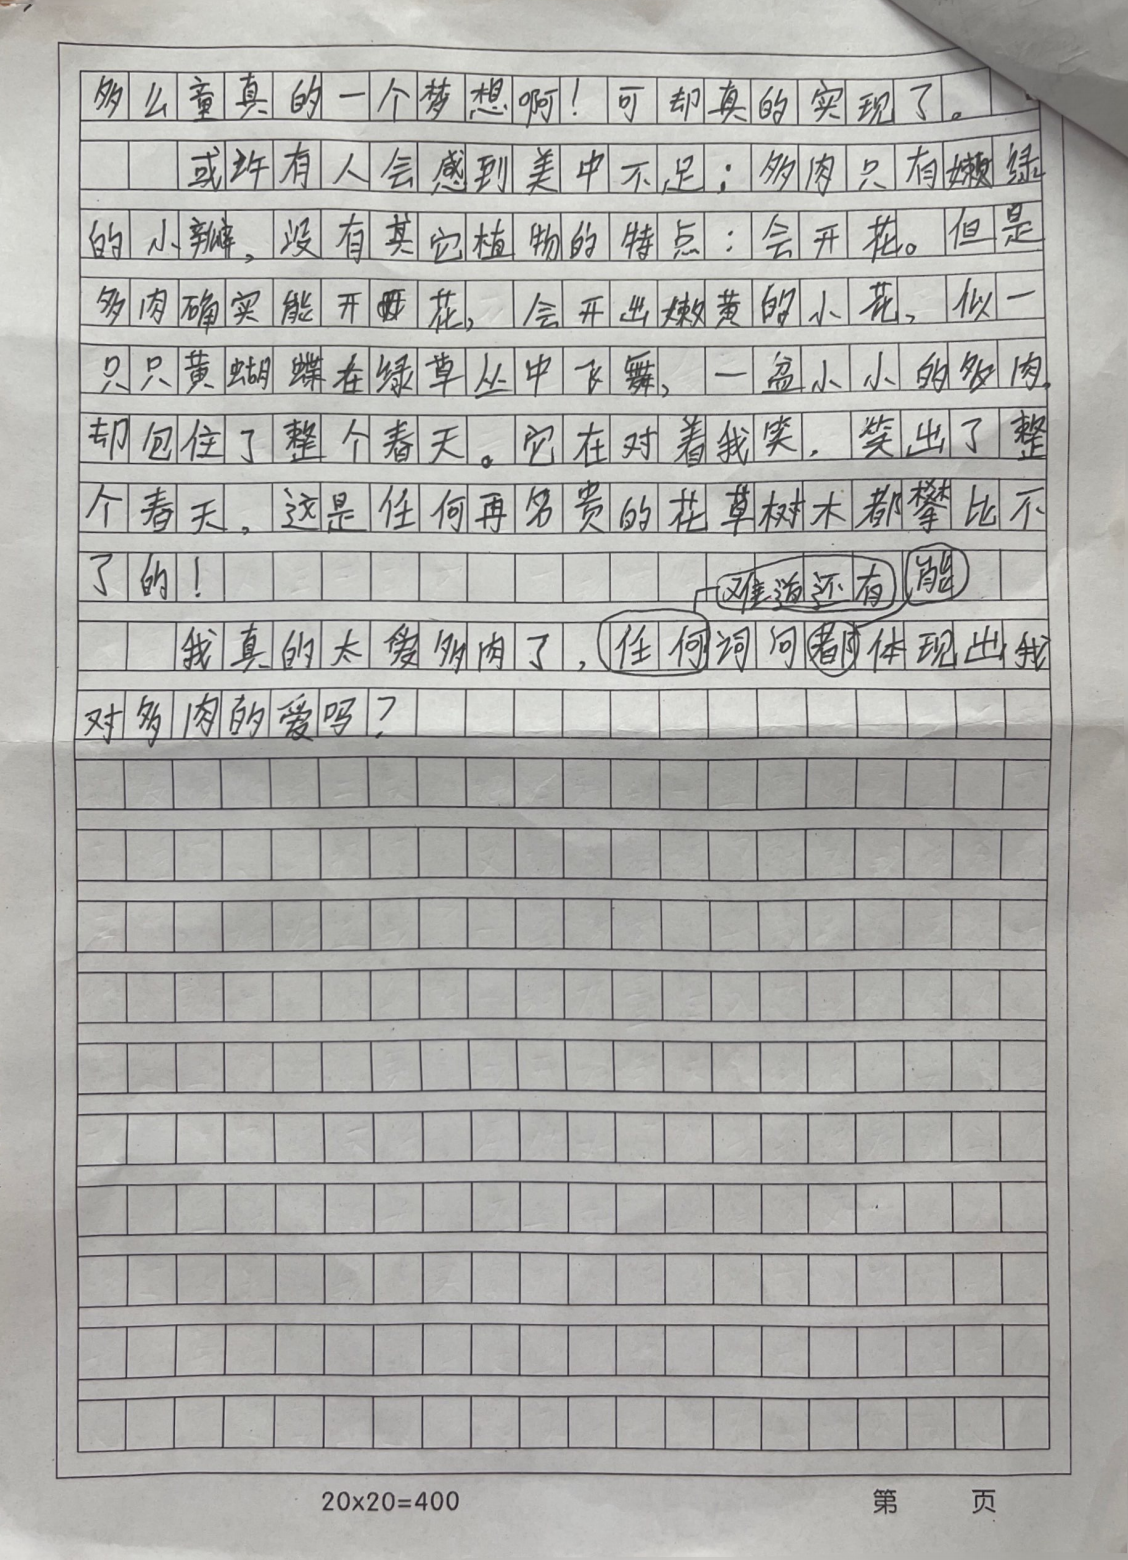 多么童真的一个梦想啊！可却真的实现了。
或许有人会感到美中不足：多肉只有嫩绿
的小瓣，没有其它植物的特点：会开花。但是
多肉确实能开花，会开出嫩黄的小花，似一
只只黄蝴蝶在绿草丛中飞舞，一盆小小的多肉，
却包住了整个春天。它在对着我笑，笑出了整
个春天，这是任何再名贵的花草树木都攀比不
了的！
难道还有 能
我真的太爱多肉了，任何词问都体现出我
对多肉的爱吗？
20x20=400 第 页